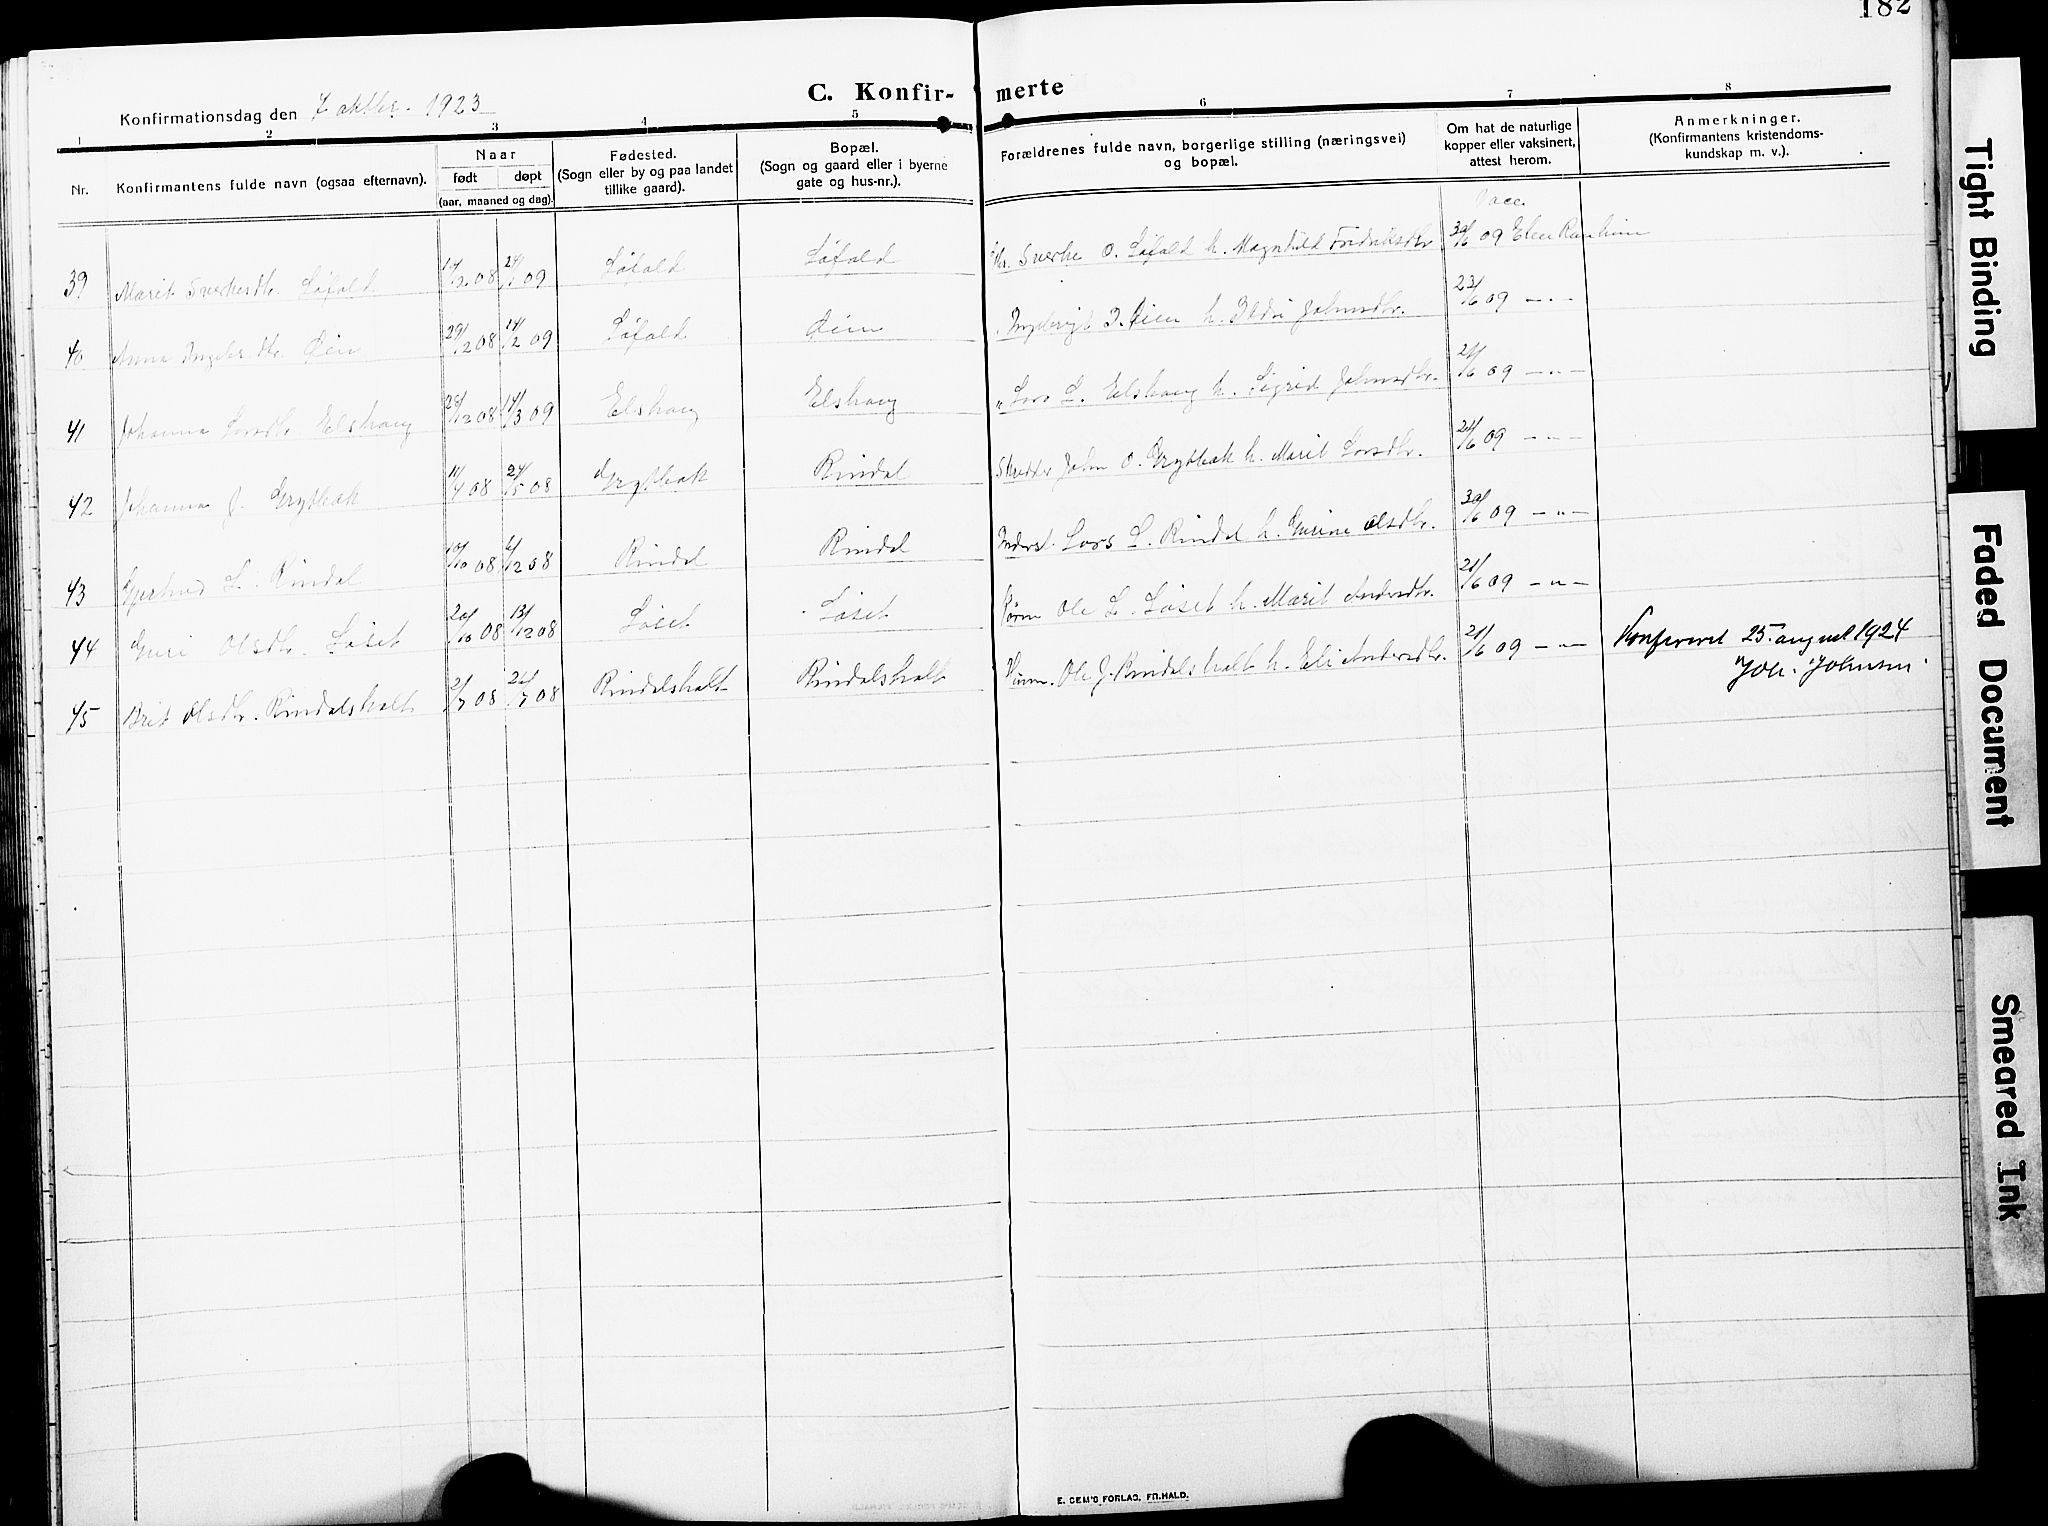 182
C. Konfir- merte
Konfirmationsdag den 7 oktbr. 1923
1 2 3 4 5 6 7 8
Nr.
Konfirmantens fulde navn (ogsaa efternavn).
Naar
født døpt
(aar, maaned og dag).
Fødested.
(Sogn eller by og paa landet
tillike gaard).
Bopæl.
(Sogn og gaard eller i byerne
gate og hus-nr.).
Forældrenes fulde navn, borgerlige stilling (næringsvei)
og bopæl.
Om hat de naturlige
kopper eller vaksinert,
attest herom.
Anmerkninger.
(Konfirmantens kristendoms-
kundskap m. v.).
Vacc.
39 Marit Sverkesdtr. Løfald 14/2 08 24/1 09 Løfald Løfald Sverke O. Løfald h. Magnhild Fredriksdtr. 30/6 09
40 Anna Ingebr.dtr. Øien 29/12 08 14/2 09 Løfald Øien Ingebrigt I. Øien h. Ildri Johnsdtr. 23/6 09 – " –
41 Johanna Larsdtr. Elshaug 20/12 08 14/3 09 Elshaug Elshaug " Lars L. Elshaug h. Sigrid Johnsdtr. 21/6 09 – " –
42 Johanna J. Grytbak 11/4 08 24/5 08 Grytbak Rindal Skrædder John O. Grytbak h. Marit Larsdtr. 21/6 09 – " –
43 Gjertrud L. Rindal 10/10 08 6/12 08 Rindal Rindal Inderst. Lars L. Rindal h. Gurine Olsdtr. 30/6 09 – " –
44 Guri Olsdtr. Løset 20/10 08 13/12 08 Løset Løset Ole L. Løset h. Marit Andersdtr. 21/6 09 – " –
45 Brit Olsdtr. Rindalsholt 2/7 08 26/7 08 Rindalsholt Rindalsholt Husm. Ole J. Rindalsholt h. Eli Andersdtr. 21/6 09 – " – Konfereret 25. august 1924
Joh. Johnsen.
E. SEM'S FORLAG, FR.HALD.
Tight Binding
Faded Document
Smeared Ink